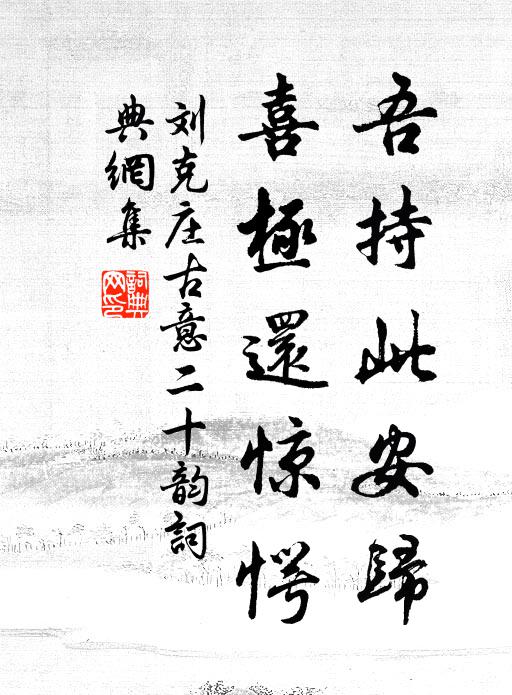 吾持此安歸
喜極還惊愕
刘克庄古意二十韵詞
典網集
詞典
网印